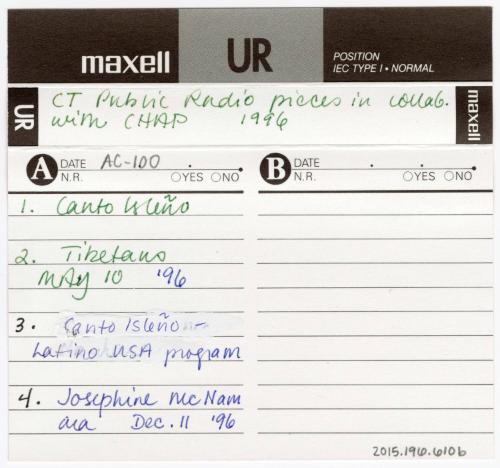 maxell
UR
POSITION
IEC TYPE I • NORMAL
UR
CT Public Radio pieces in collab.
with CHAP 1996
maxell
A DATE AC-100
N.R. YES NO
B DATE
N.R. YES NO
1. Canto Isleño
2. Tibetans
MAy 10 '96
3. Canto Isleño -
Latino USA program
4. Josephine McNam
ara Dec. 11 '96
2015.196.610b